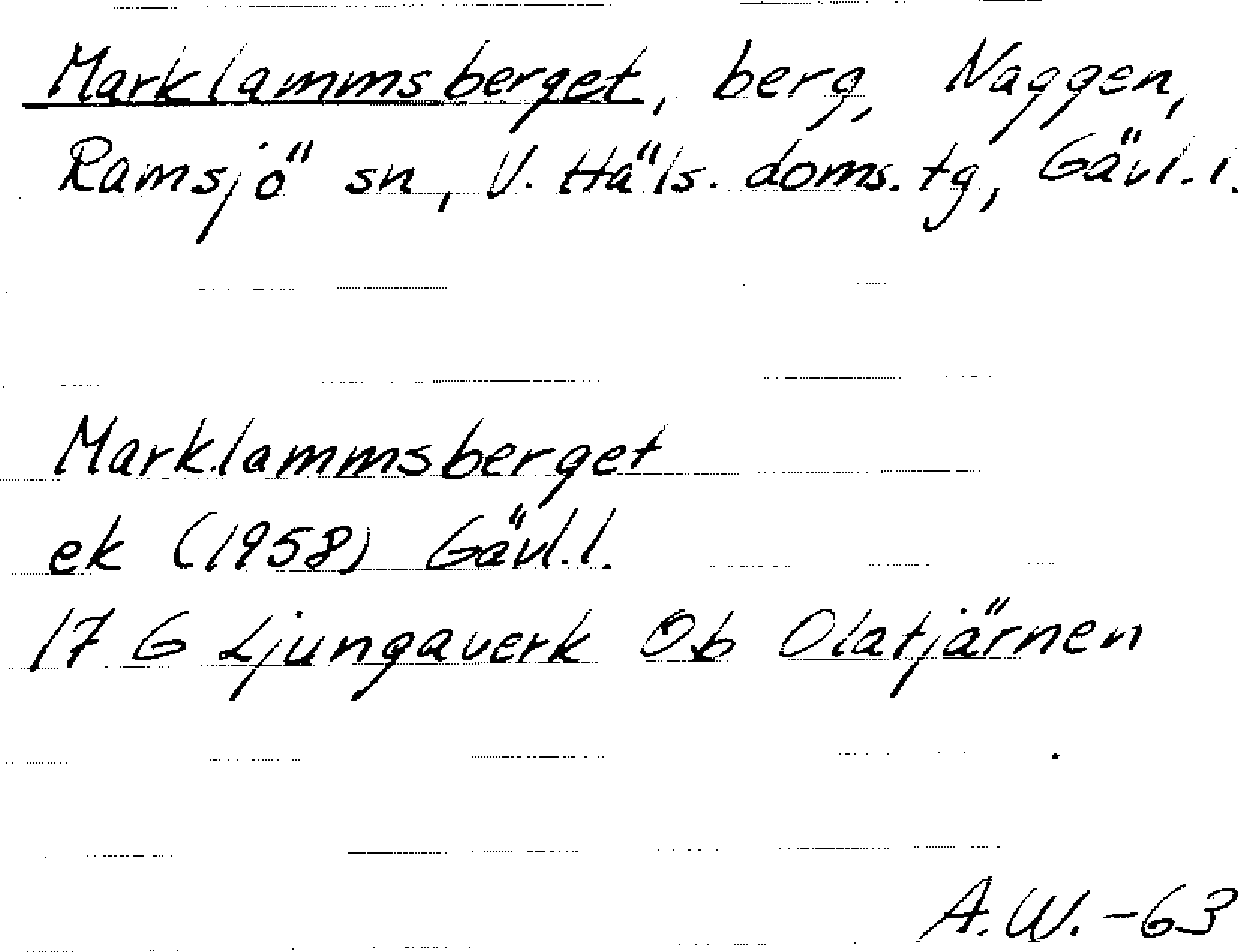 Marklammsberget, berg, Naggen,
Ramsjö sn, V. Häls. doms. tg, Gävl. l.
Marklammsberget
ek (1958) Gävl. l.
17 G Ljungaverk Ob Olatjärnen
A.W. -63